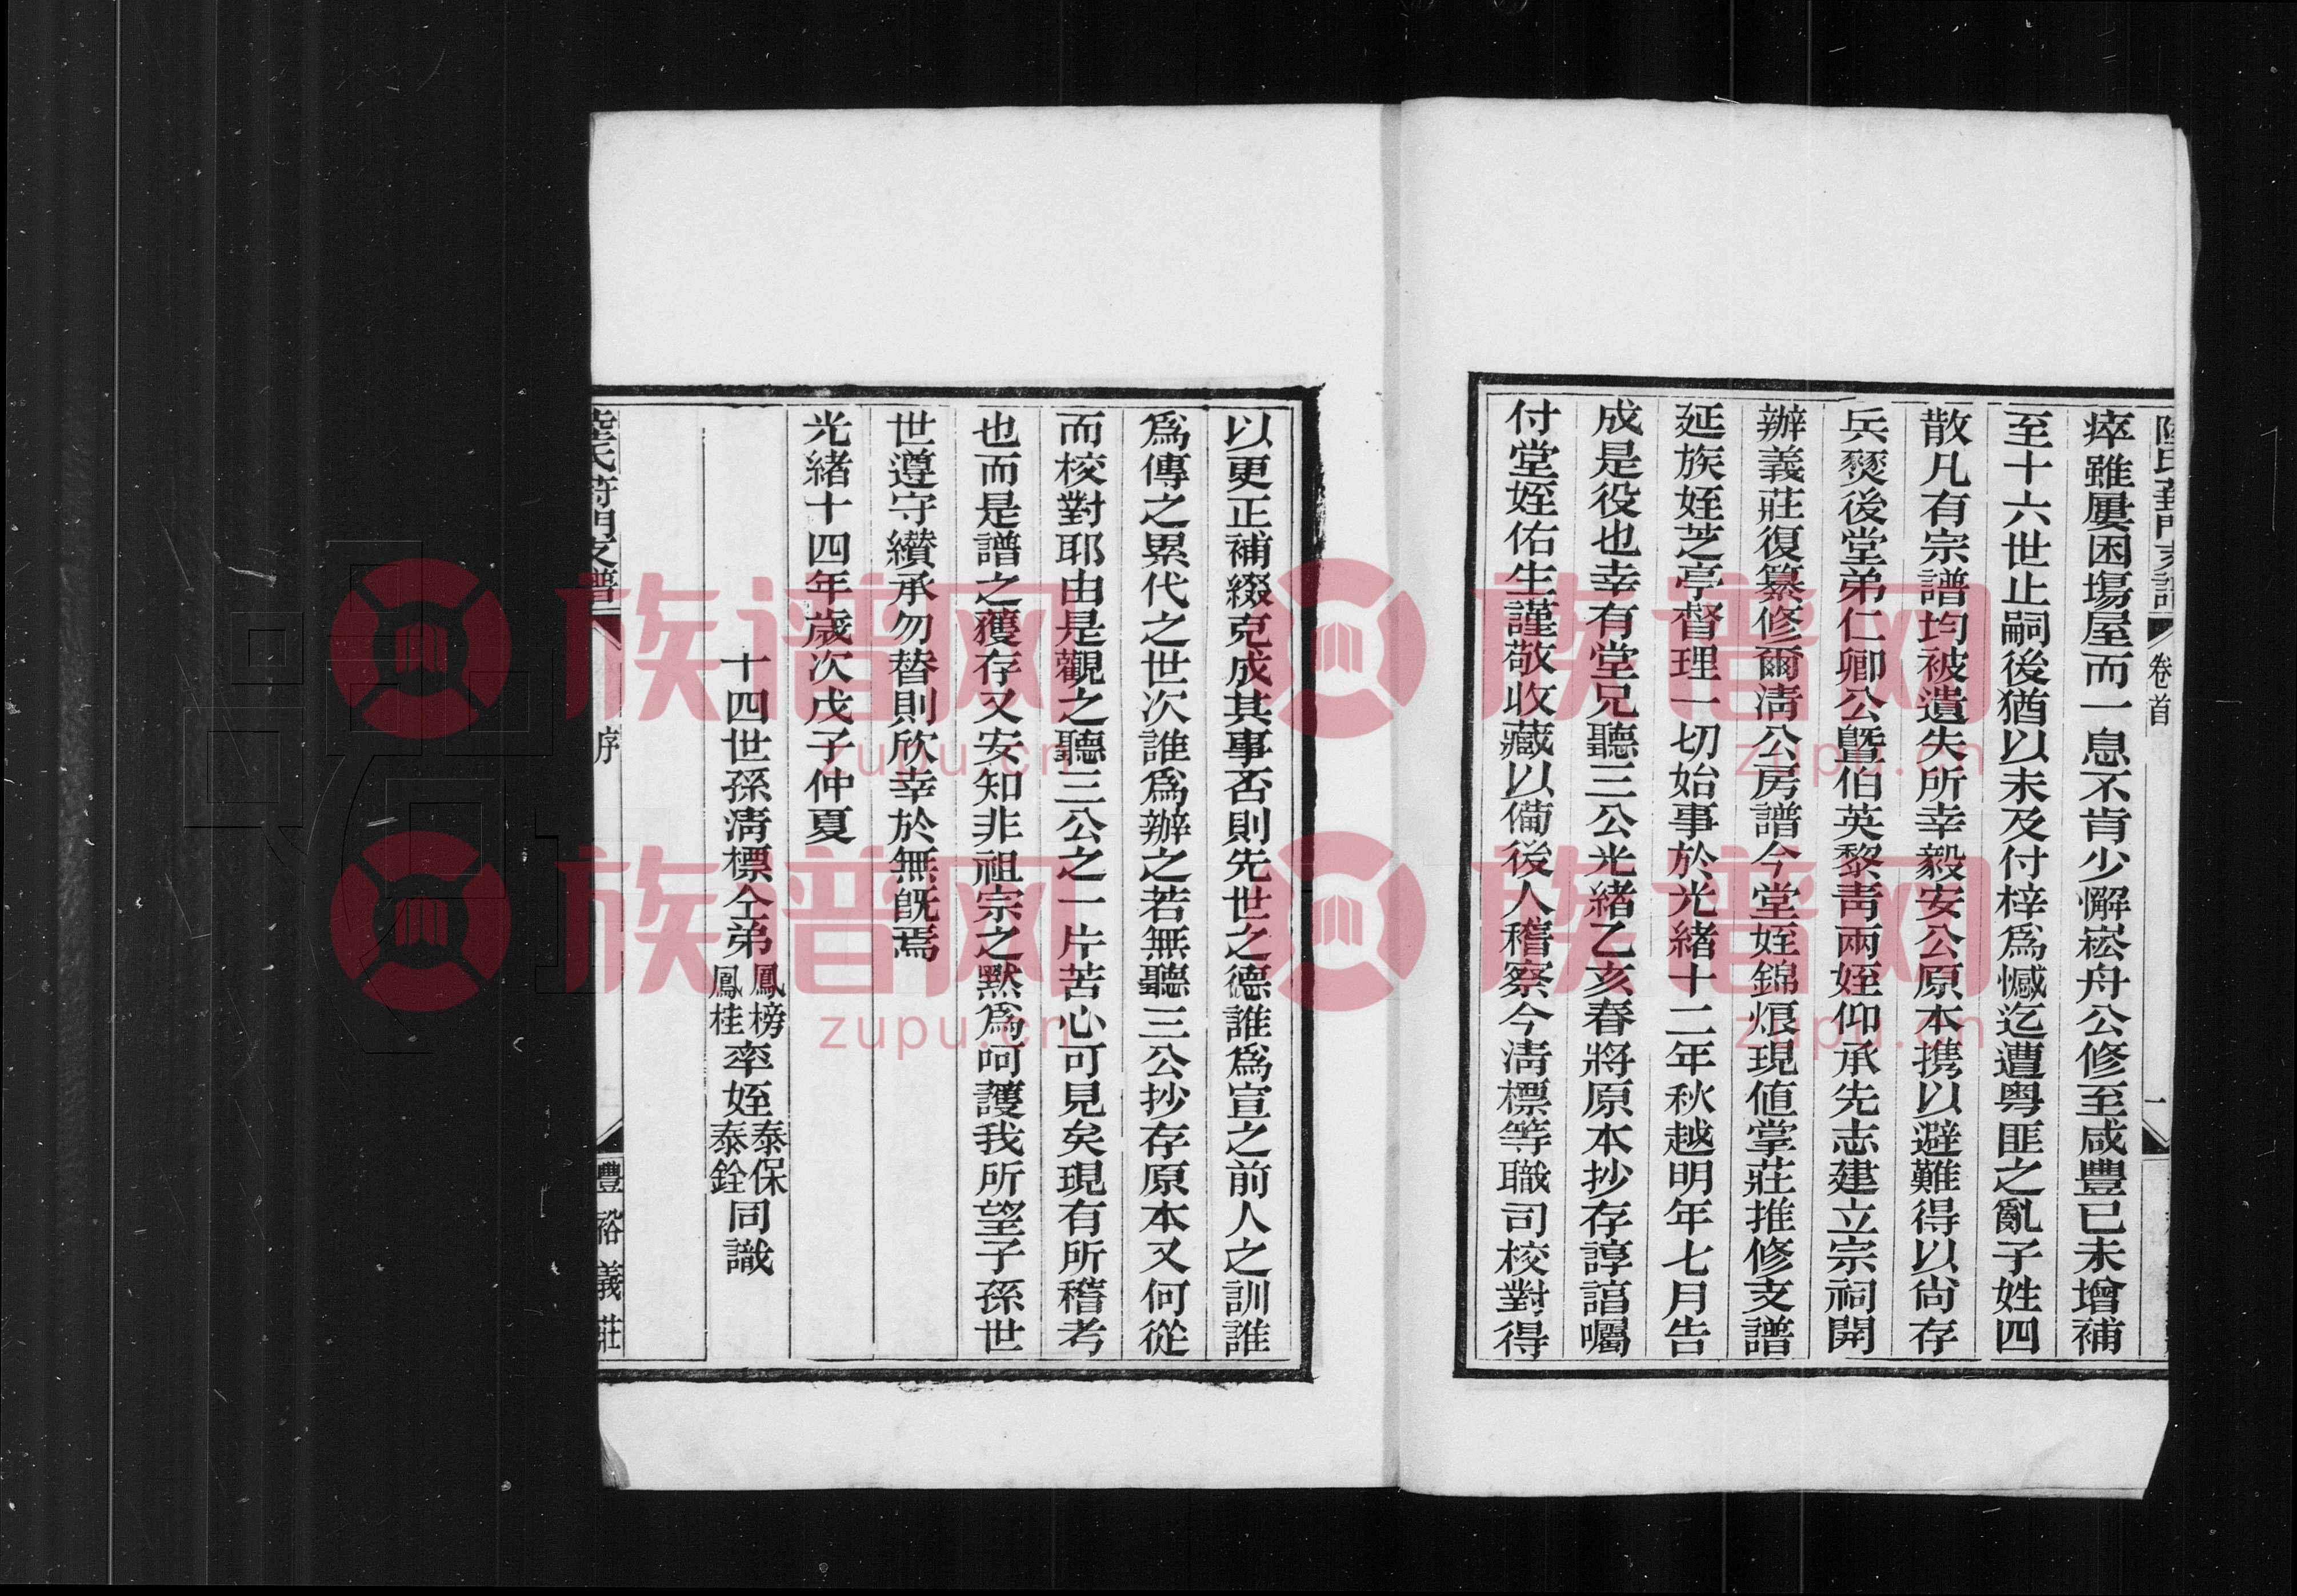 卷首
一
瘁雖屢困塲屋而一息不肯少懈崧舟公修至咸豐已未增補
至十六世止嗣後猶以未及付梓爲憾迄遭粵匪之亂子姓四
散凡有宗譜均被遺失所幸毅安公原本携以避難得以尙存
兵燹後堂弟仁卿公曁伯英黎靑兩姪仰承先志建立宗祠開
辦義莊復纂修爾淸公房譜今堂姪錦烺現値掌莊推修支譜
延族姪芝亭督理一切始事於光緒十二年秋越明年七月告
成是役也幸有堂兄聽三公光緒乙亥春將原本抄存諄諄囑
付堂姪佑生謹敬收藏以備後人稽察今淸標等職司校對得
以更正補綴克成其事否則先世之德誰爲宣之前人之訓誰
爲傳之累代之世次誰爲辦之若無聽三公抄存原本又何從
而校對耶由是觀之聽三公之一片苦心可見矣現有所稽考
也而是譜之獲存又安知非祖宗之默爲呵護我所望子孫世
世遵守纘承勿替則欣幸於無旣焉
光緒十四年歲次戊子仲夏
十四世孫淸標仝弟鳳榜鳳桂率姪泰保泰銓同識
序
豐裕義莊
族谱网
zupu.cn
族谱网
zupu.cn
族谱网
zupu.cn
族谱网
zupu.cn